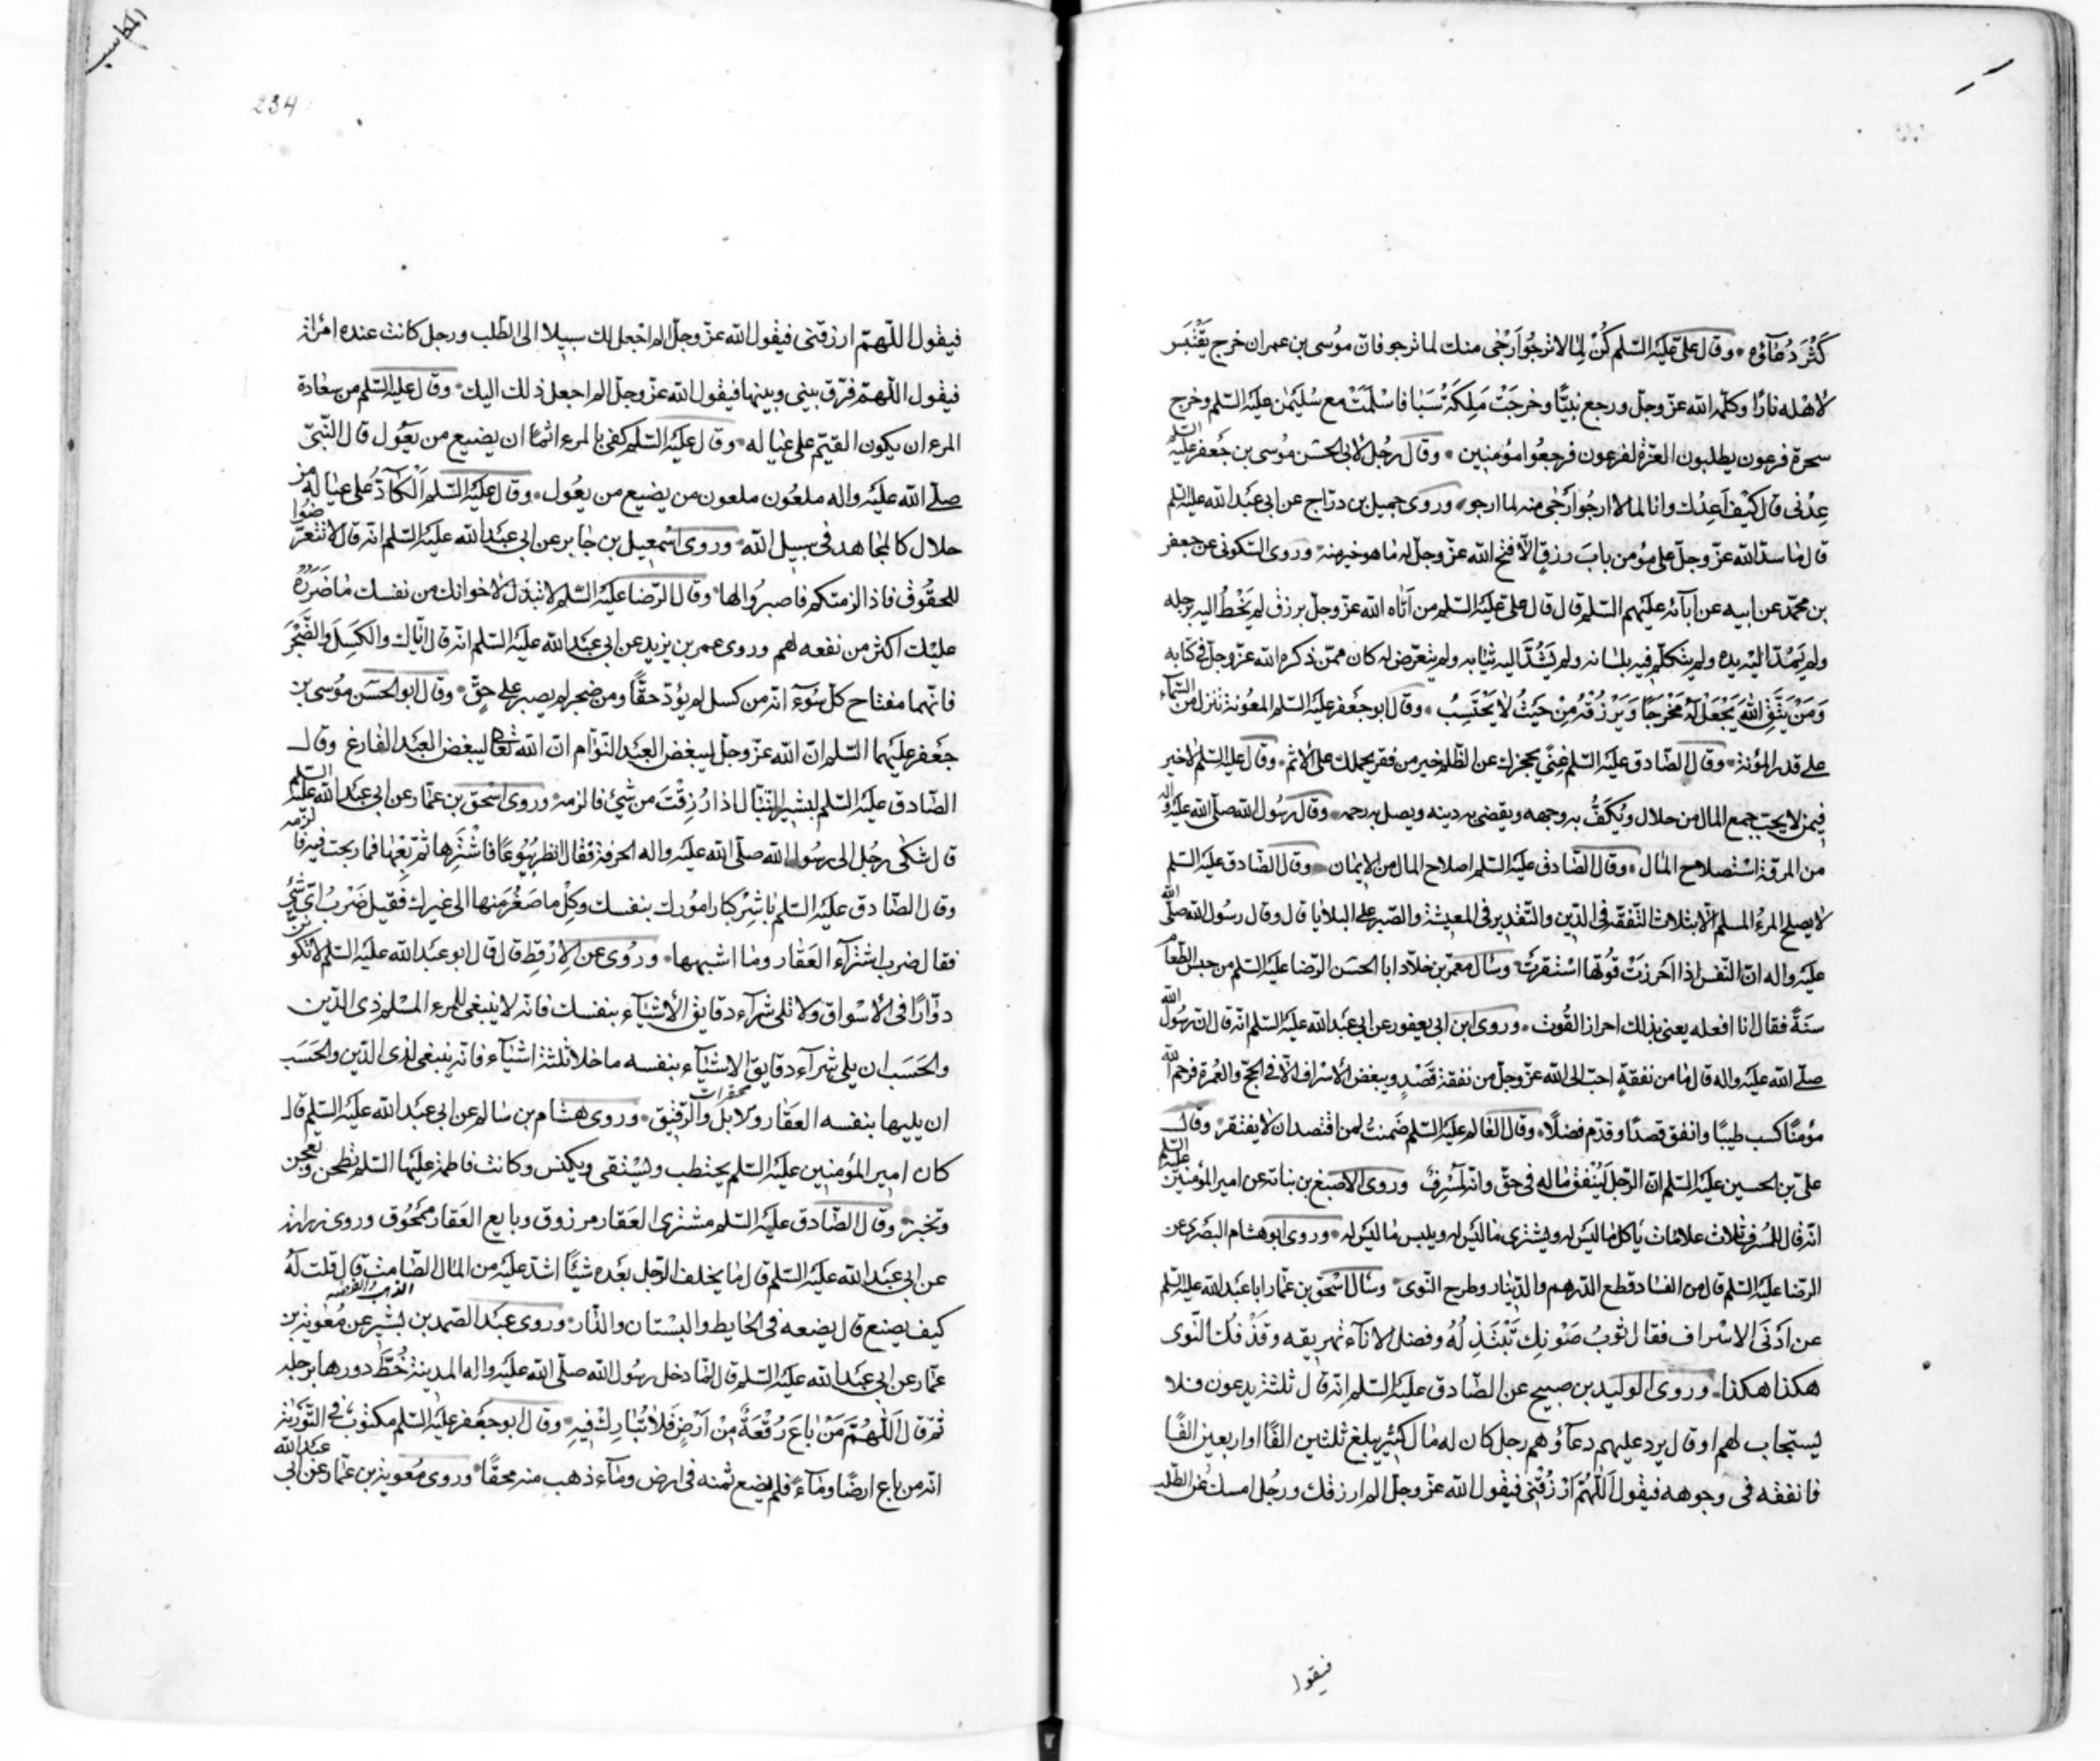 كَثُرَ دُعآؤه وقال علىّ عليه السّلم كُنْ لِمالا ترجُو اَرْجٰى منك لما ترجو فانّ موُسى بن عمران خرج يَقْتَبِسُ
لأهْله نارًا وكلّمه الله عزّ وجلّ ورجع نبيًّا وخرجَتْ مَلِكَةُ سَبَا فاسْلَمَتْ مع سُلَيْمٰن عليه السّلم وخرج
سحرة فرعون يطلبون العزّة لفرعون فرجعُوا مؤمنين وقال رجُل لأبى الحسن موُسى بن جَعفر عليه السّلم
عِدْنى قال كَيْفَ اَعِدُك وانا لما لا ارجُو اَرْجٰى منه لما ارجو وروى جميل بن درّاج عن ابى عبد الله عليه السّلم
قال ما سدّ الله عزّ وجلّ على مؤمن بابَ رزقٍ الّا فتح الله عزّ وجلّ له ما هو خير منه وروى السّكونى عن جعفر
بن محمّد عن ابيه عن آبآئه عليهم السّلم قال قال علىّ عليه السّلم من اَتاه الله عزّ وجلّ برزق لم يَخْطُ اليه برجله
ولم يَمُدّ اليه يده ولم يتكلّم فيه بلسانه ولم يَشُدّ اليه ثيابه ولم يتعرّض له كان ممّن ذكره الله عزّ وجلّ فى كتابه
وَمَنْ يَتَّقِ اللهَ يَجْعَلْ لَهُ مَخْرَجًا وَيَرْزُقْهُ مِنْ حَيْثُ لا يَحْتَسِبُ وقال ابو جَعفر عليه السّلم المعُونة تنزل من السّمآء
على قدر المؤنة وقال الصّادق عليه السّلم غِنًى يحجزك عن الظّلم خير من فقر يحملك على الأثم وقال عليه السّلم لا خير
فيمن لا يحبّ جمع المال من حلال ويكَفُّ به وجهه ويقضى به دينه ويصل به رحمه وقال رسُول الله صلّى الله عليه واله
من المروّة استصلاح المال وقال الصّادق عليه السّلم اصلاح المال من الايمان وقال الصّادق عليه السّلم
لا يصلح المرءُ المسلم الّا بثلاث التّفقّه فى الدّين والتّقدير فى المعيشة والصّبر على البلايا قال وقال رسُول الله صلّى الله
عليه واله انّ النّفس اذا احرزَتْ قُوتَها اسْتقرّتْ وسأل معمّر بن خلّاد ابا الحسَن الرّضا عليه السّلم من حبس الطّعام
سنَةً فقال انا افعله يعنى بذلك احراز القُوت وروى ابن ابى يعفور عن ابى عبد الله عليه السّلم انّه قال انّ رسُول الله
صلّى الله عليه واله قال ما من نفقةٍ احبّ الى الله عزّ وجلّ من نفقة قَصْدٍ ويبغض الأسْراف الّا فى الحجّ والعُمرة فرحم الله
مؤمنًا كسب طيبًا وانفق قصدًا وقدّم فضلًا وقال العالم عليه السّلم ضَمنتُ لمن اقتصد ان لا يفتقر وقال
علىّ بن الحسين عليه السّلم انّ الرّجل لَيُنفق ماله فى حقّ وانّه لَمُسْرِفٌ وروى الاصبغ بن نباتة عن امير المؤمنين عليه السّلم
انّه قال للمُسرف ثلاث علامات ياكل ما ليس له ويشترى ما ليس له ويلبس ما ليس له وروى ابو هشام البصَرى عن
الرّضا عليه السّلم قال من الفساد قطع الدّرهم والدّينار وطرح النّوى وسأل اسْحٰق بن عمّار ابا عبد الله عليه السّلم
عن اَدْنَى الاسْراف فقال ثوبُ صَوْنِكَ تَبْتَذِلُهُ وفضل الاناء تهريقه وقذفك النّوى
هكذا هكذا وروى الوليد بن صبيح عن الصّادق عليه السّلم انّه قال ثلثة يدعون فلا
يستجاب لهم او قال يرد عليهم دعآؤهم رجل كان له مال كثير يبلغ ثلثين الفًا او اربعين الفًا
فانفقه فى وجوهه فيقول اَللّٰهُمَّ ارْزُقْنى فيقول الله عزّ وجلّ الم ارزقك ورجُل امسك عن الطّلب
فيقوا
المكاسب
234
فيقول اللّٰهمّ ارزقنى فيقول الله عزّ وجلّ الم اجعل لك سبيلا الى الطّلب ورجل كانت عنده امرأة
فيقول اللّٰهمّ فرّق بينى وبينها فيقول الله عزّ وجلّ الم اجعل ذلك اليك وقال عليه السّلم من سعادة
المرء ان يكون القيّم على عياله وقال عليه السّلم كفى بالمرء اثمًا ان يضيع من يعُول قال النّبىّ
صلّى الله عليه واله ملعُون ملعون من يضيع من يعُول وقال عليه السّلم اَلْكآدُّ على عياله من
حلال كالمجاهد فى سبيل الله وروى اسْمعيل بن جابر عن ابى عبد الله عليه السّلم انّه قال لا تتعرّضُوا
للحقُوق فاذا لزمتكم فاصبرُوا لها وقال الرّضا عليه السّلم لا تبذل لاخوانك من نفسك ما ضَرَرُه
عليك اكثر من نفعه لهم وروى عمر بن يزيد عن ابى عبد الله عليه السّلم انّه قال ايّاك والكَسَلَ والضَّجْرَ
فانّهما مفتاح كلّ سُوءٍ انّه من كسل لم يؤدّ حقًّا ومن ضجر لم يصبر على حقٍّ وقال ابو الحسَن موُسى بن
جَعفر عليهما السّلم انّ الله عزّ وجلّ ليبغض العبد النّوّام انّ الله تعالى ليبغض العبد الفارغ وقال
الصّادق عليه السّلم لبشير النّبّال اذا رُزِقْتَ من شئ فالزمه وروى اسْحٰق بن عمّار عن ابى عبد الله عليه السّلم
قال شكٰى رجُل الى رسُول الله صلّى الله عليه واله الحرفة فقال انظر بُيُوعًا فاشْتَرِها ثمّ بِعْها فما ربحت فيه فالزمه
وقال الصّادق عليه السّلم باشِرْ كبار امُورك بنفسك وكِلْ ما صَغُرَ منها الى غيرك فقيل ضَرْبُ اىّ شئ
فقال ضرب اشترآء العَقار وما اشبهها وروُى عن الارْقط قال قال ابو عبد الله عليه السّلم لا تكونّ
دوّارًا فى الأسْواق ولا تلى شرآء دقايق الأشيآء بنفسك فانّه لا ينبغى للمرء المسْلم ذى الدّين
والحَسَب ان يلى شرآء دقايق الاشيآء بنفسه ما خلا ثلثة اشيآء فانّه ينبغى لذى الدّين والحَسَب
ان يليها بنفسه العَقار والابل والرّقيق وروى هشام بن سالم عن ابى عبد الله عليه السّلم قال
محقرات
كان امير المؤمنين عليه السّلم يحتطب ويَسْتقى ويكنس وكانت فاطمة عليها السّلم تطحن وتعجن
وتخبز وقال الصّادق عليه السّلم مشترى العَقار مرزوق وبايع العَقار ممحُوق وروى زرارة
عن ابى عبد الله عليه السّلم قال ما يخلف الرّجل بَعْده شيئًا اشدّ عليه من المال الصّامت قال قلت له
الذهب والفضة
كيف يصنع قال يضعه فى الحايط والبستان والدّار وروى عبد الصّمد بن بشير عن مُعٰوية بن
عمّار عن ابى عبد الله عليه السّلم قال لمّا دخل رسُول الله صلّى الله عليه واله المدينة خُطَّ دورها برجله
ثمّ قال اَللّٰهُمَّ مَنْ باعَ رُقْعَةً مِنْ اَرْضٍ فَلاٰ تُبٰارِكْ فيهِ وقال ابو جَعفر عليه السّلم مكتوبٌ فى التّورٰية
انّه من باع ارضًا ومآءً فلم يضع ثمنه فى ارض ومآء ذهب منه محقًا وروى مُعٰوية بن عمّار عن ابى عبد الله